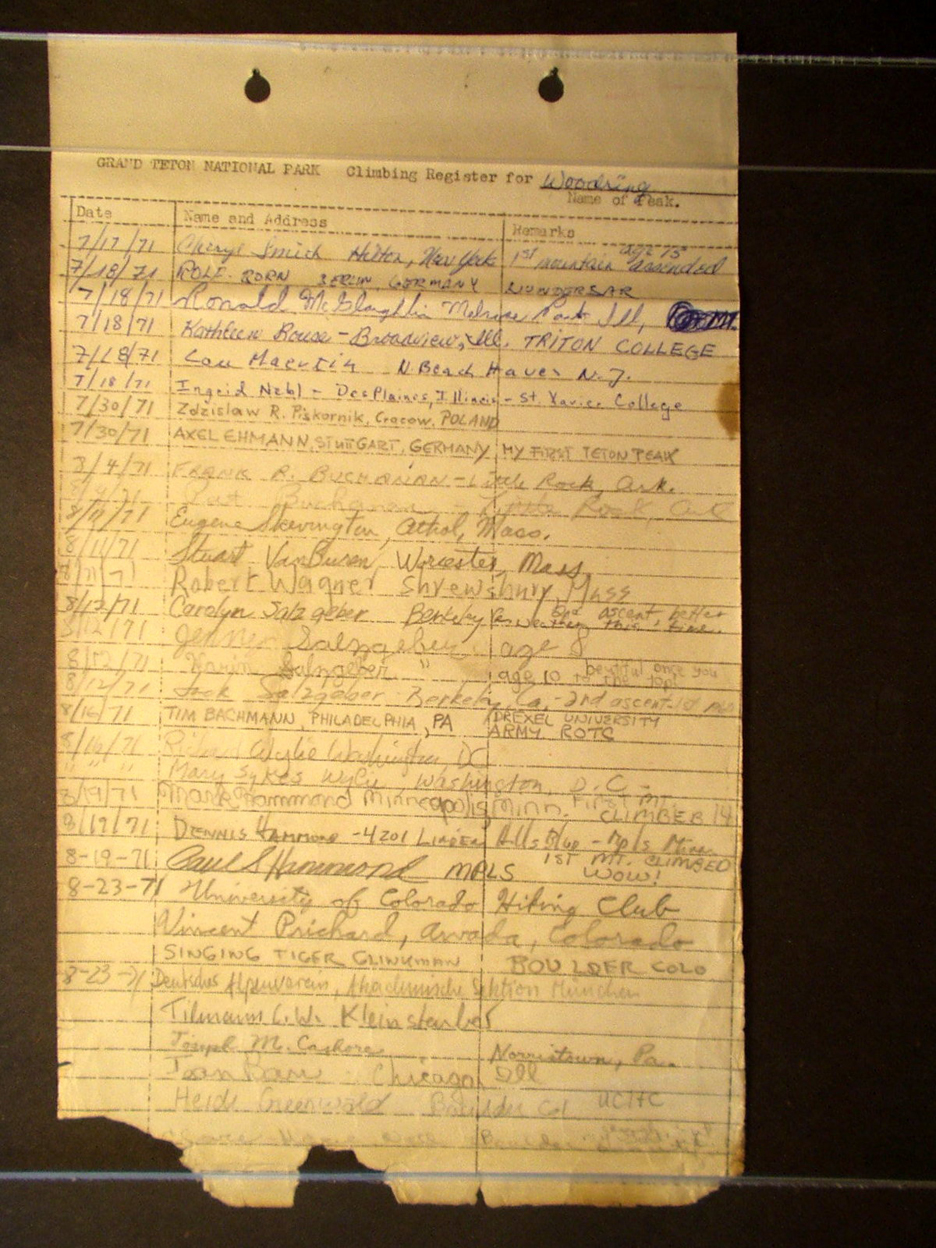 GRAND TETON NATIONAL PARK Climbing Register for Woodring
Name of Peak.
Date Name and Address Remarks
7/17/71 Cheryl Smith Hilton, New York 1st mountain ascended age 13
7/18/71 ROLF BORN BERLIN, GERMANY WUNDERSAR
7/18/71 Ronald McGlaughlin Melrose Park Ill,
7/18/71 Kathleen Rouse - Broadview, Ill. TRITON COLLEGE
7/18/71 Lou N. Beach Haven N.J.
7/18/71 Ingrid - Des Plaines, Illinois - St. Xavier College
7/30/71 Zdzislaw R. Piskornik, Cracow, POLAND
7/30/71 AXEL EHMANN, STUTTGART, GERMANY MY FIRST TETON PEAK
8/4/71 FRANK R. BUCHANAN - Little Rock, Ark.
8/4/71 Pat Buchanan - Little Rock, Ark
8/11/71 Eugene Skevington, Athol, Mass.
8/11/71 Stuart VanBuren, Worcester, Mass.
8/11/71 Robert Wagner Shrewsbury, Mass
8/12/71 Carolyn Salzgeber Berkeley 2nd ascent, better weather this time.
8/12/71 Salzgeber age 8
8/12/71 Karin Salzgeber " age 10 beutiful once you to the top!
8/12/71 Jack Salzgeber Berkeley, Ca, 2nd ascent
8/16/71 TIM BACHMANN, PHILADELPHIA, PA DREXEL UNIVERSITY
ARMY ROTC
8/16/71 Richard Wylie Washington, DC
" " " Mary Sykes Wylie Washington, D.C. -
8/19/71 Mark Hammond Minneapolis Minn. First MT. CLIMBER 14
8/19/71 DENNIS HAMMOND - 4201 Linden Hills Blvd - Mpls Minn.
8-19-71 Paul S Hammond MPLS 1ST MT. CLIMBED WOW!
8-23-71 University of Colorado Hiking Club
Vincent Prichard, Arvada, Colorado
SINGING TIGER GLINKMAN BOULDER COLO
8-23-71 Deutscher Alpenverein, Akademische Sektion München
Tilmann C.W. Kleinsteuber
Joseph M. Cashore Norristown, Pa.
Joan Chicago, Ill
Heidi Greenwald Boulder Col UCHC
Boulder